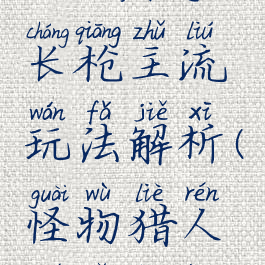 cháng qiāng zhǔ liú
长枪主流
wán fǎ jiě xī
玩法解析(
guài wù liè rén
怪物猎人